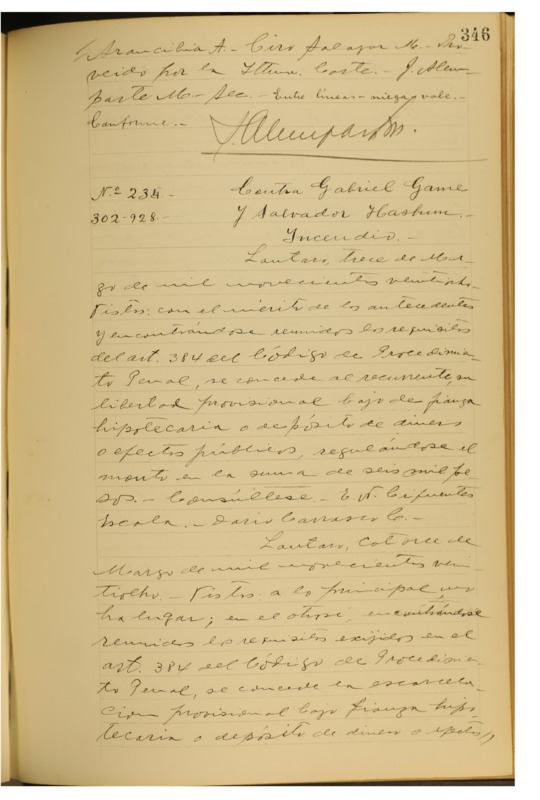 346
Arancibia A. - Ciro Salazar M. - Pro-
veido por la Iltma. Corte. - J. Alem-
parte M. - Sec. - Entre líneas - niega, vale. -
Conforme. -
J. Alemparte M.
N.º 234 -
302-928. -
Contra Gabriel Game
y Salvador Hashum. -
Incendio. -
Lautaro, trece de Mar-
zo de mil novecientos veintiocho. -
Vistos: con el mérito de los antecedentes
y encontrándose reunidos los requisitos
del art. 384 del Código de Procedimien-
to Penal, se concede al recurrente, su
libertad provisional bajo de fianza
hipotecaria o depósito de dinero
o efectos públicos, regulándose el
monto en la suma de seis mil pe-
sos. - Consúltese. - E. N. Cifuentes
Escala. - Dario Carrasco C. -
Lautaro, catorce de
Marzo de mil novecientos vein-
tiocho. - Vistos: a lo principal, no
ha lugar; en el otrosí, encontrándose
reunidos los requisitos exijidos en el
art. 384 del Código de Procedimien-
to Penal, se concede la escarcela-
cion provisional bajo fianza hipo-
tecaria o depósito de dinero o efectos